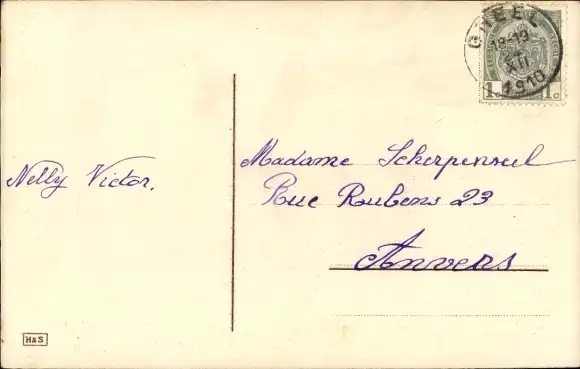 GHEEL
18-19
24
XII
1910
1 c 1 c
Nelly Victor.
Madame Scherpenseel
Rue Rubens 23
Anvers
H&S